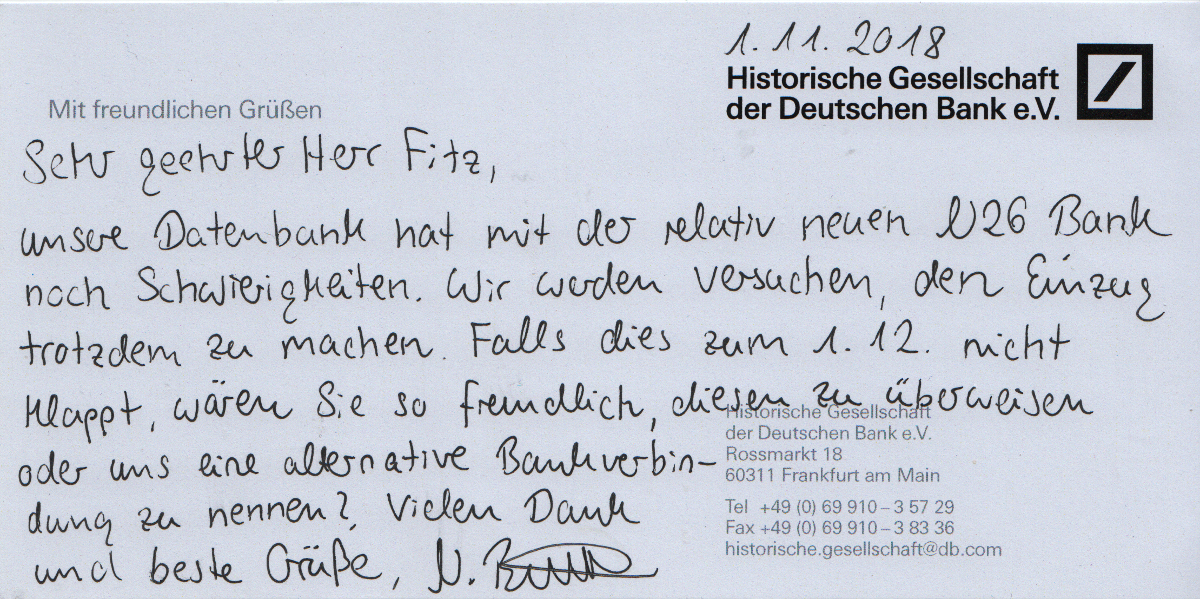 1. 11. 2018
Historische Gesellschaft
der Deutschen Bank e.V.
Mit freundlichen Grüßen
Sehr geehrter Herr Fitz,
unsere Datenbank hat mit der relativ neuen N26 Bank
noch Schwierigkeiten. Wir werden versuchen, den Einzug
trotzdem zu machen. Falls dies zum 1. 12. nicht
klappt, wären Sie so freundlich, diesen zu überweisen
oder uns eine alternative Bankverbin-
dung zu nennen?, Vielen Dank
und beste Grüße, N.
Historische Gesellschaft
der Deutschen Bank e.V.
Rossmarkt 18
60311 Frankfurt am Main
Tel +49 (0) 69 910 – 3 57 29
Fax +49 (0) 69 910 – 3 83 36
historische.gesellschaft@db.com